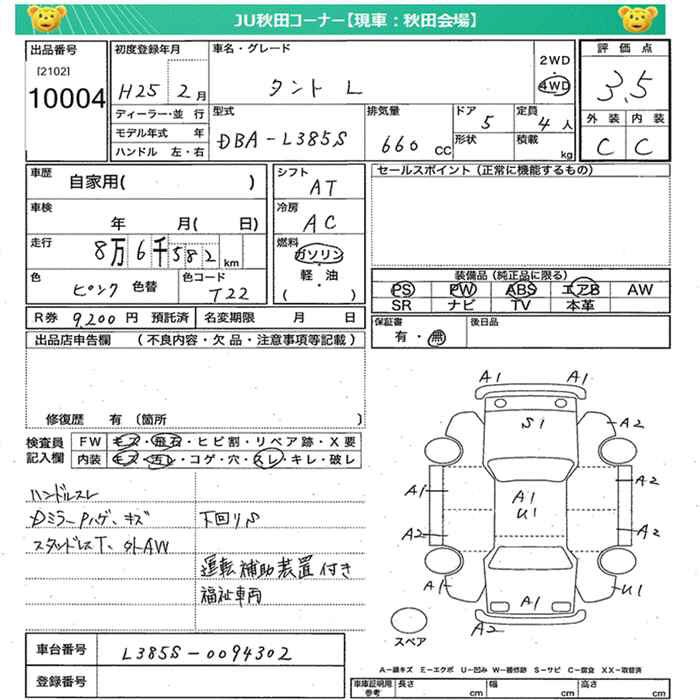 JU秋田コーナー【現車：秋田会場】
出品番号
[2102]
10004
初度登録年月
H25 2月
車名・グレード
タント L
2WD
・
4WD
評価点
3.5
ディーラー・並 行
モデル年式 年
ハンドル 左・右
型式
DBA-L385S
排気量
660 CC
ドア
5
形状
定員
4人
積載
kg
外装 内装
C C
車歴
自家用( )
車検
年 月( 日)
走行
8万6千582km
色
ピンク 色替
色コード
T22
シフト
AT
冷房
AC
燃料
ガソリン
・
軽・油
( )
セールスポイント（正常に機能するもの）
装備品（純正品に限る）
PS PW ABS エアB AW
SR ナビ TV 本革
R券 9,200 円 預託済 名変期限 月 日
保証書
有・無
後日品
出品店申告欄 （不良内容・欠品・注意事項等記載）
修復歴 有 〔箇所 〕
検査員
記入欄
FW キズ・飛石・ヒビ割・リペア跡・X要
内装 キズ・汚レ・コゲ・穴・スレ・キレ・破レ
ハンドルスレ
DミラーPハゲ、キズ 下回りS
スタッドレスT、外AW
運転補助装置付き
福祉車両
A1 A1
S1
A2
A1
A2
A1
U1
A2
A2
A1
A1
U1
A2
スペア
車台番号 L385S-0094302
登録番号
A－線キズ E－エクボ U－凹み W－補修跡 S－サビ C－腐食 XX－取替済
車庫証明用
参考
長さ cm 幅 cm 高さ cm